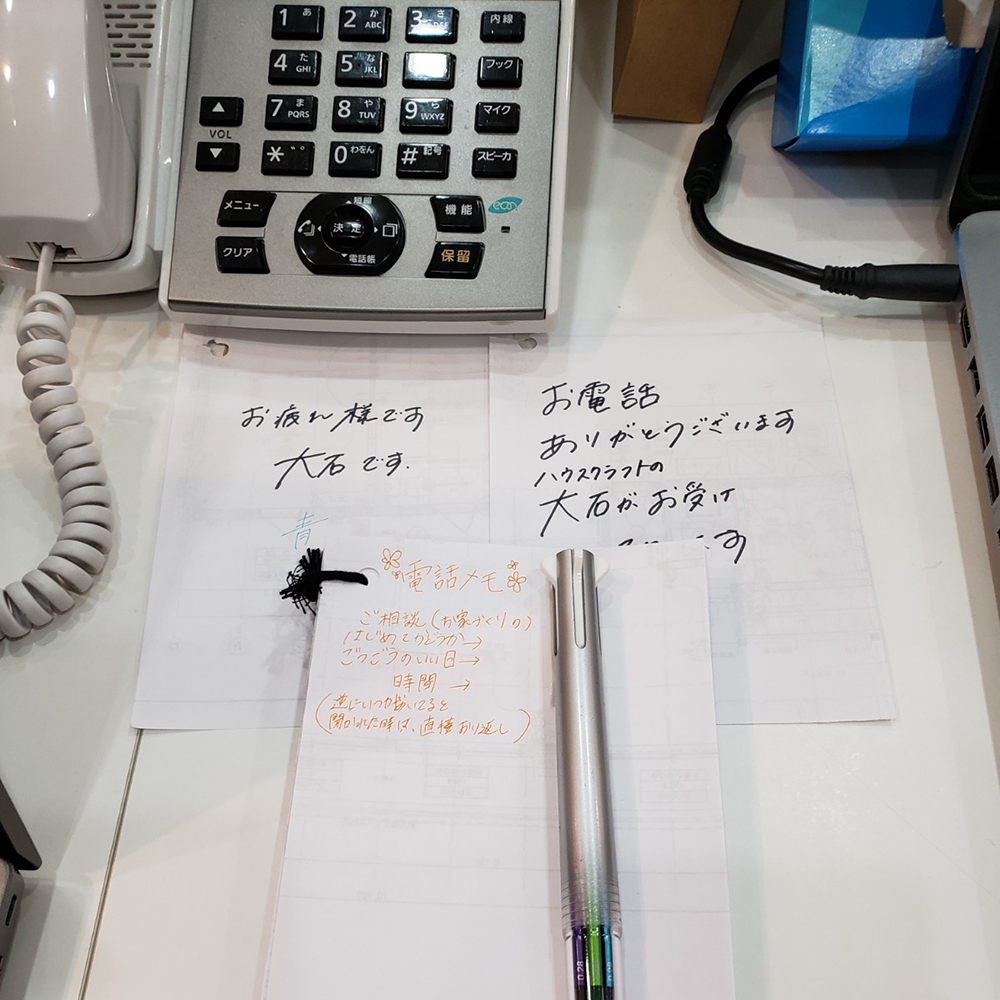 1 あ 2 か ABC 3 さ DEF 内線
4 た GHI 5 な JKL フック
VOL 7 ま PQRS 8 や TUV 9 ら WXYZ マイク
* 0 わをん # 記号 スピーカ
メニュー 短縮 機能 eco
決定
クリア 電話帳 保留
お疲れ様です
大石です.
青
お電話
ありがとうございます
ハウスクラフトの
大石がお受け
ます
電話メモ
ご相談(お家づくりの)
はじめてかどうか→
ごつごうのいい日→
時間 →
(逆にいつか空いてると
聞かれた時は、直接おり返し)
0.28 0.28